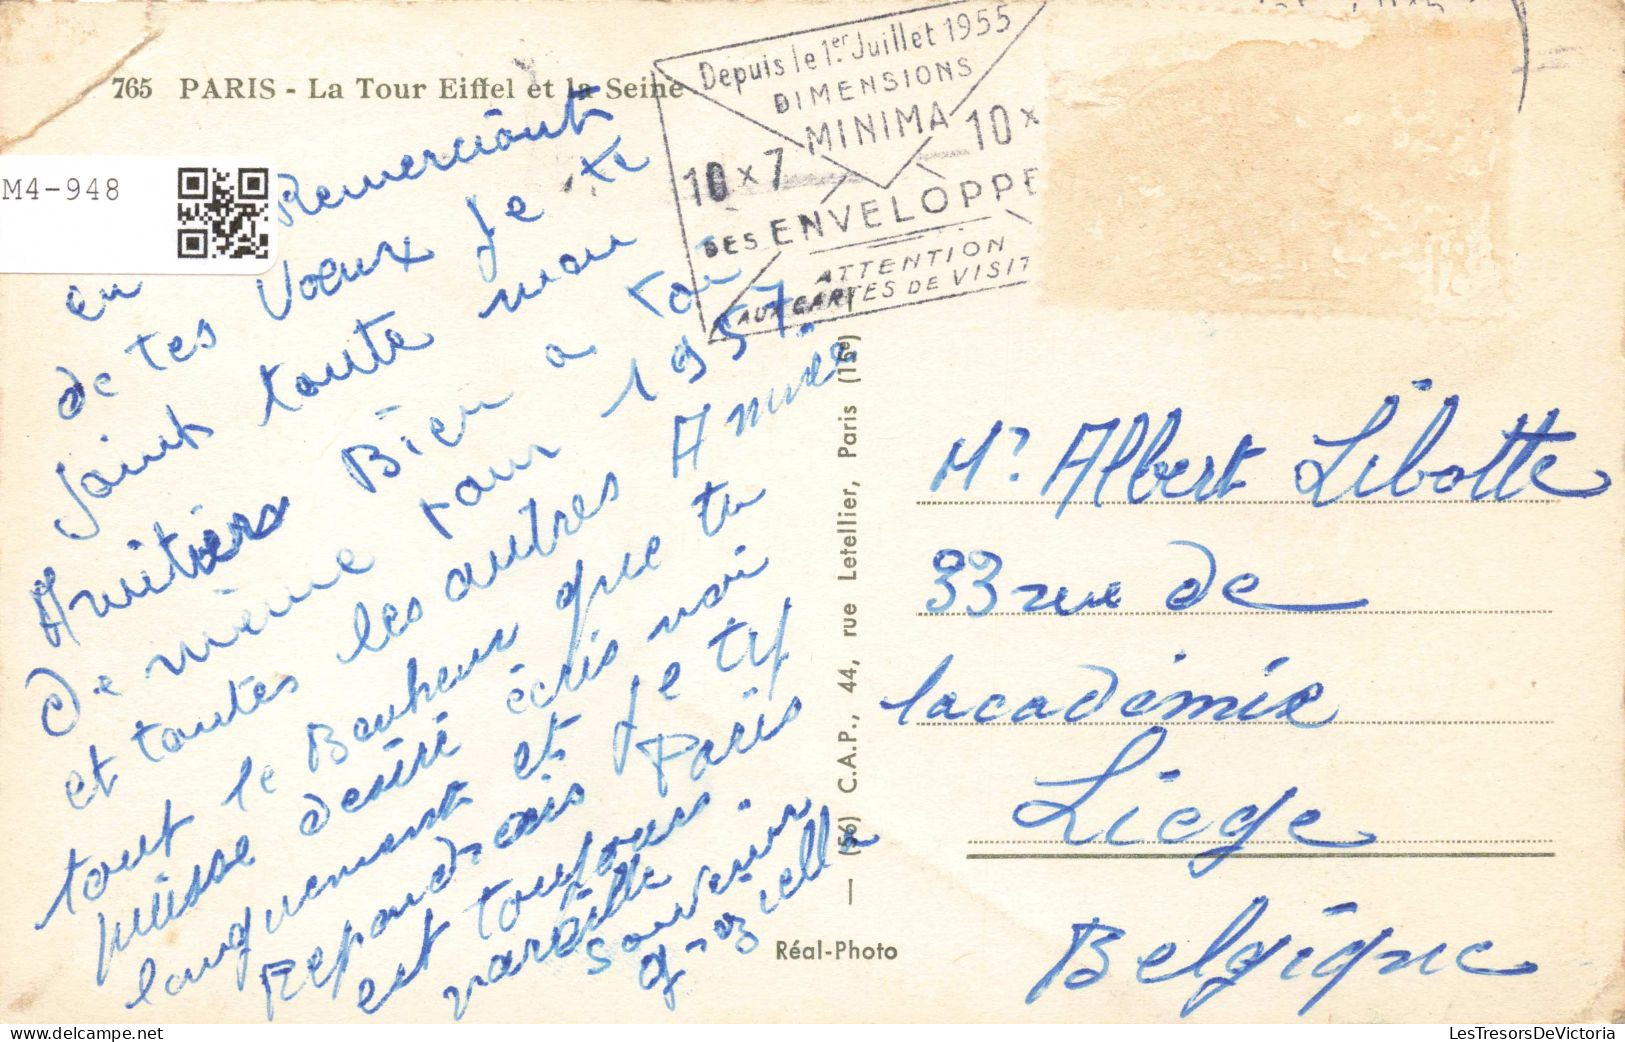 765 PARIS - La Tour Eiffel et la Seine
M4-948
Depuis le 1er Juillet 1955
DIMENSIONS
MINIMA
10 x 7 10 x
DES ENVELOPPE
ATTENTION
AUX CARTES DE VISIT
en Remerciant
de tes Voeux Je te
Joint toute mon
Amitiers Bien a toi
De même pour 1957.
et toutes les autres Année
tout le Bonheur que tu
puisse desiré écris moi
longuement et Je ty
Repondrais Paris
est toujours
pareille
souvenir
(56) C.A.P., 44, rue Letellier, Paris (15e)
Réal-Photo
Mr. Albert Libotte
33 rue de
lacadémie
Liege
Belgique
LesTresorsDeVictoria